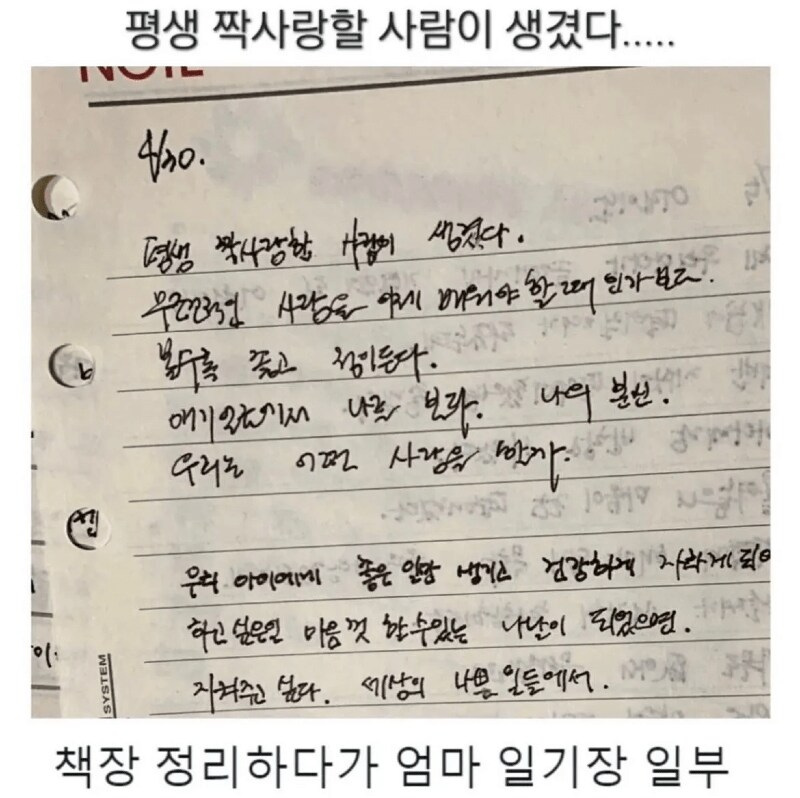 평생 짝사랑할 사람이 생겼다.....
NOTE
4/30.
평생 짝사랑할 사람이 생겼다.
무조건적인 사랑을 이제 배워야 할 때 인가보다.
볼수록 좋고 정이든다.
나를 보라. 나의 분신.
우리는 어떤 사랑을 할까.
우리 아이에게 좋은 일만 생기고 건강하게 자라게 되어
하고 싶은일 마음껏 할 수 있는 나날이 되었으면.
지켜주고 싶다. 세상의 나쁜 일들에서.
SYSTEM
책장 정리하다가 엄마 일기장 일부